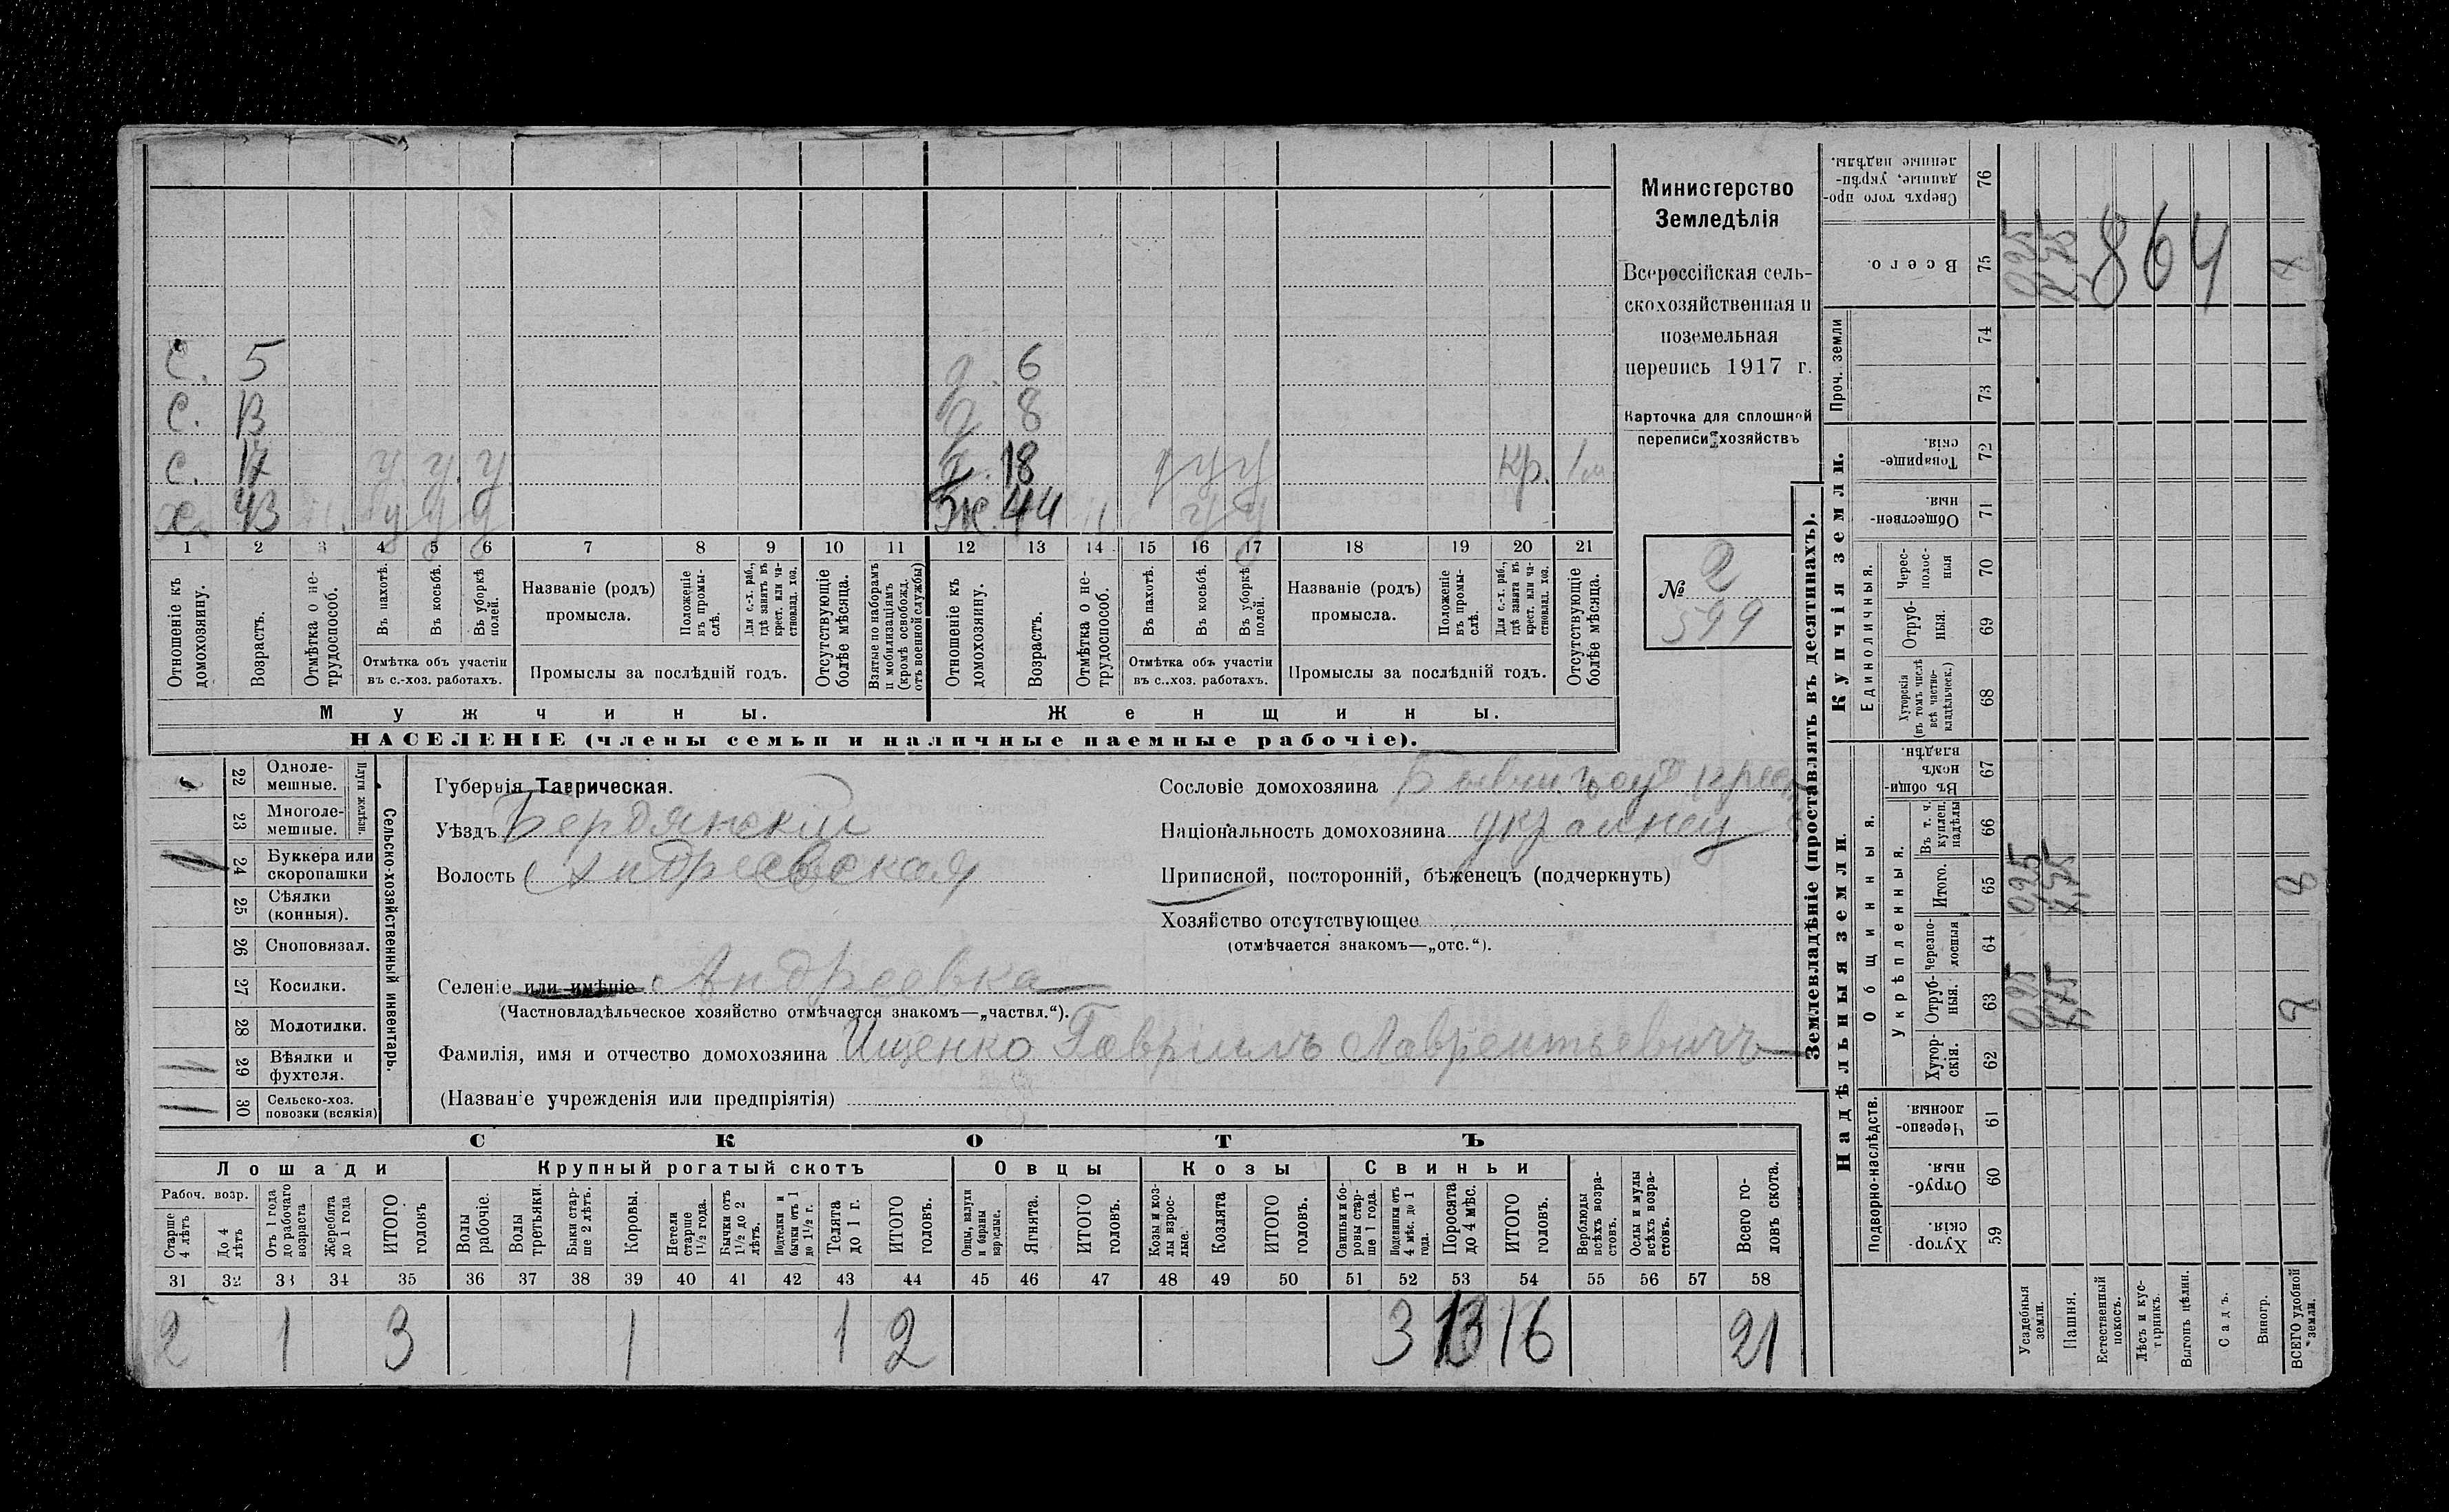 Министерство
Земледѣлія
Всероссійская сель-
скохозяйственная и
поземельная
перепись 1917 г.
Карточка для сплошной
переписи хозяйствъ
№ 2
599
С. 5
С. 13
С. 17 у у у
х. 43 у у у
д. 6
д. 8
д. 18 у у у кр. 1 м
ж. 44 у у
1 2 3 4 5 6 7 8 9 10 11 12 13 14 15 16 17 18 19 20 21
Отношеніе къ домохозяину.
Возрастъ.
Отмѣтка о не-трудоспособ.
Въ пахотѣ.
Въ косьбѣ.
Въ уборкѣ полей.
Отмѣтка объ участіи
въ с.-хоз. работахъ.
Названіе (родъ)
промысла.
Положеніе въ промы-слѣ.
Для с.-х. раб., гдѣ занятъ въ крест. или ча-стновлад. хоз.
Промыслы за послѣдній годъ.
Отсутствующіе болѣе мѣсяца.
Взятые по наборамъ и мобилизаціямъ (кромѣ освобожд. отъ военной службы)
Отношеніе къ домохозяину.
Возрастъ.
Отмѣтка о не-трудоспособ.
Въ пахотѣ.
Въ косьбѣ.
Въ уборкѣ полей.
Отмѣтка объ участіи
въ с..хоз. работахъ.
Названіе (родъ)
промысла.
Положеніе въ промы-слѣ.
Для с.-х. раб., гдѣ занята въ крест. или ча-стновлад. хоз.
Промыслы за послѣдній годъ.
Отсутствующіе болѣе мѣсяца.
Мужчины. Женщины.
НАСЕЛЕНІЕ (члены семьи и наличные наемные рабочіе).
Сельско-хозяйственный инвентарь.
Плуги желѣзн.
22 Одноле-мешные.
23 Многоле-мешные.
24 Буккера или скоропашки
25 Сѣялки (конныя).
26 Сноповязал.
27 Косилки.
28 Молотилки.
1 29 Вѣялки и фухтеля.
1 30 Сельско-хоз. повозки (всякія)
Губернія Таврическая.
Уѣздъ Бердянскій
Волость Андреевская
Селеніе или имѣніе Андреевка
(Частновладѣльческое хозяйство отмѣчается знакомъ—„частвл.“).
Фамилія, имя и отчество домохозяина Ищенко Гавріилъ Лаврентьевичъ
(Названіе учрежденія или предпріятія)
Сословіе домохозяина
Національность домохозяина украинец
Приписной, посторонній, бѣженецъ (подчеркнуть)
Хозяйство отсутствующее
(отмѣчается знакомъ—„отс.“).
СКОТЪ
Лошади Крупный рогатый скотъ Овцы Козы Свиньи
Рабоч. возр.
Старше 4 лѣтъ
До 4 лѣтъ
Отъ 1 года до рабочаго возраста
Жеребята до 1 года
ИТОГО головъ
Волы рабочіе.
Волы третьяки.
Быки стар-ше 2 лѣтъ.
Коровы.
Нетели старше 1½ года.
Бычки отъ 1½ до 2 лѣтъ.
Подтелки и бычки отъ 1 до 1½ г.
Телята до 1 г.
ИТОГО головъ.
Овцы, валухи и бараны взрослые.
Ягнята.
ИТОГО головъ.
Козы и коз-лы взрос-лые.
Козлята
ИТОГО головъ.
Свиньи и бо-ровы стар-ше 1 года.
Подсвинки отъ 4 мѣс. до 1 года.
Поросята до 4 мѣс.
ИТОГО головъ.
Верблюды всѣхъ возра-стовъ.
Ослы и мулы всѣхъ возра-стовъ.
Всего го-ловъ скота.
31 32 33 34 35 36 37 38 39 40 41 42 43 44 45 46 47 48 49 50 51 52 53 54 55 56 57 58
2 1 3 1 1 2 3 13 16 21
Землевладѣніе (проставлять въ десятинахъ).
Купчія земли.
Надѣльныя земли.
Проч. земли
Сверхъ того про-данные, укрѣп-ленные надѣлы. 76
Всего. 75
74
73
Товарище-скія. 72
Обществен-ныя. 71
Единоличныя.
Черес-полос-ныя 70
Отруб-ныя. 69
Хуторскія (въ томъ числѣ всѣ частно-владѣльческ.) 68
Общинныя.
Въ общин-номъ владѣн. 67
Укрѣпленныя.
Въ т. ч. куплен. надѣлы 66
Итого. 65
Черезпо-лосныя 64
Отруб-ныя. 63
Хутор-скія. 62
Подворно-наслѣдств.
Черезпо-лосныя. 61
Отруб-ныя. 60
Хутор-скія. 59
Усадебныя земли.
Пашня.
Естественный покосъ.
Лѣсъ и кус-тарникъ.
Выгонъ цѣлин.
Садъ.
Виногр.
ВСЕГО удобной земли.
864
8